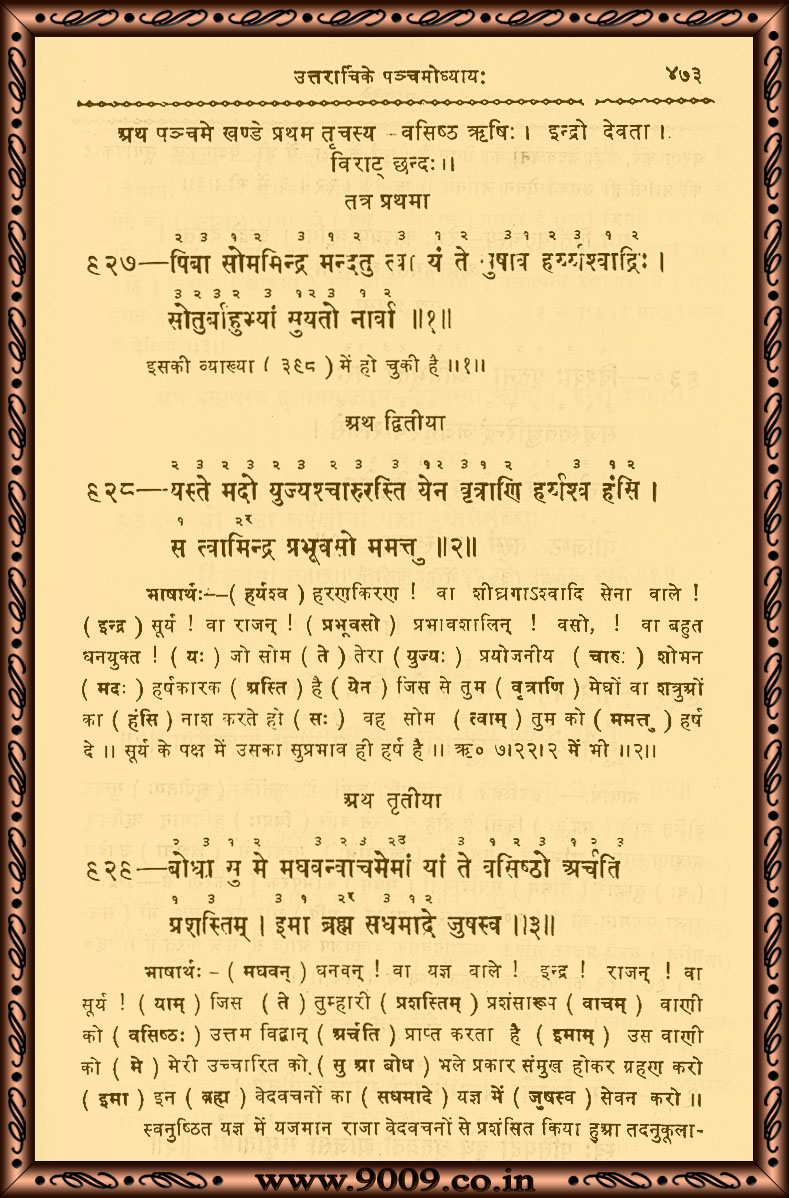 उत्तरार्चिके पञ्चमोध्यायः ४७३
अथ पञ्चमे खण्डे प्रथम तृचस्य - वसिष्ठ ऋषिः । इन्द्रो देवता ।
विराट् छन्दः ।।
तत्र प्रथमा
२ ३ १ २ ३ १ २ ३ १ २ ३ १ २ ३ १ २
९२७—पिबा सोममिन्द्र मन्दतु त्वा यं ते सुषाव हर्य्यश्वाद्रिः ।
३ २ ३ २ ३ १२ ३ १ २
सोतुर्बाहुभ्यां सुयतो नार्वा ॥१॥
इसकी व्याख्या ( ३९८ ) में हो चुकी है ॥१॥
अथ द्वितीया
२ ३ २ ३ २ ३ २ ३ १२ ३ १ २ ३ १ २
९२८—यस्ते मदो युज्यश्चारुरस्ति येन वृत्राणि हर्य्यश्व हंसि ।
१ २र
स त्वामिन्द्र प्रभूवसो ममत्तु ॥२॥
भाषार्थः—( हर्यश्व ) हरणकिरण ! वा शीघ्रगाऽश्वादि सेना वाले !
( इन्द्र ) सूर्य ! वा राजन् ! ( प्रभूवसो ) प्रभावशालिन् ! वसो, ! वा बहुत
धनयुक्त ! ( यः ) जो सोम ( ते ) तेरा ( युज्यः ) प्रयोजनीय ( चारुः ) शोभन
( मदः ) हर्षकारक ( अस्ति ) है ( येन ) जिस से तुम ( वृत्राणि ) मेघों वा शत्रुओं
का ( हंसि ) नाश करते हो ( सः ) वह सोम ( त्वाम् ) तुम को ( ममत्तु ) हर्ष
दे ॥ सूर्य के पक्ष में उसका सुप्रभाव ही हर्ष है ॥ ऋ० ७।२२।२ में भी ॥२॥
अथ तृतीया
२ ३ १ २ ३ २ ३ २उ ३ १ २ ३ १ २ ३
९२९—बोधा सु मे मघवन्वाचमेमां यां ते वसिष्ठो अर्चति
१ ३ ३ १ २र ३ १ २
प्रशस्तिम् । इमा ब्रह्म सधमादे जुषस्व ॥३॥
भाषार्थः - ( मघवन् ) धनवन् ! वा यज्ञ वाले ! इन्द्र ! राजन् ! वा
सूर्य ! ( याम् ) जिस ( ते ) तुम्हारी ( प्रशस्तिम् ) प्रशंसारूप ( वाचम् ) वाणी
को ( वसिष्ठः ) उत्तम विद्वान् ( अर्चति ) प्राप्त करता है ( इमाम् ) उस वाणी
को ( मे ) मेरी उच्चारित को ( सु आ बोध ) भले प्रकार संमुख होकर ग्रहण करो
( इमा ) इन ( ब्रह्म ) वेदवचनों का ( सधमादे ) यज्ञ में ( जुषस्व ) सेवन करो ॥
स्वनुष्ठित यज्ञ में यजमान राजा वेदवचनों से प्रशंसित किया हुआ तदनुकूला-
www.9009.co.in